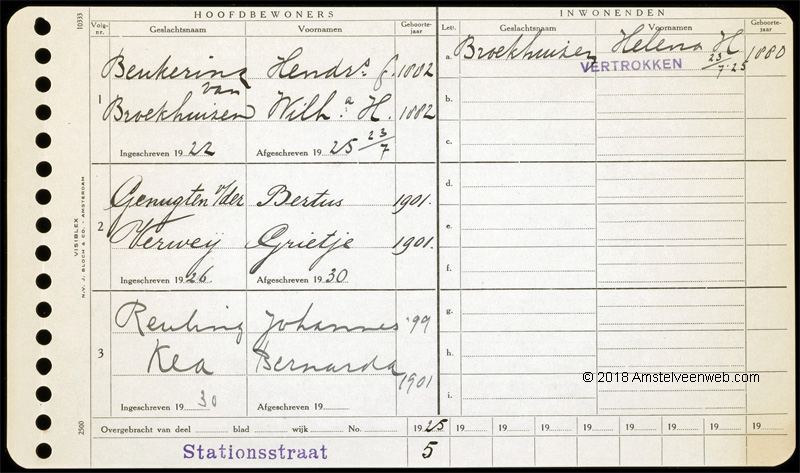 10333
HOOFDBEWONERS
Volg-nr. Geslachtsnaam Voornamen Geboorte-jaar
Beukering Hendrs 1882
van
1 Broekhuisen Wilh.a H. 1882
Ingeschreven 1922 Afgeschreven 1925 23/7
Genugten v/der Bertus 1901.
2 Verweij Grietje 1901.
Ingeschreven 1926 Afgeschreven 1930
Reuling Johannes '99
3 Kea Bernarda 1901
Ingeschreven 1930 Afgeschreven 19
VISIBLEX
N.V. J. BLOCH & CO. - AMSTERDAM
2500
Overgebracht van deel blad wijk No. 1925
Stationsstraat 5
INWONENDEN
Lett. Geslachtsnaam Voornamen Geboorte-jaar
a. Broekhuizen Helena H 1880
VERTROKKEN 23/7-25
b.
c.
d.
e.
f.
g.
h.
i.
© 2018 Amstelveenweb.com
19 19 19 19 19 19 19 19